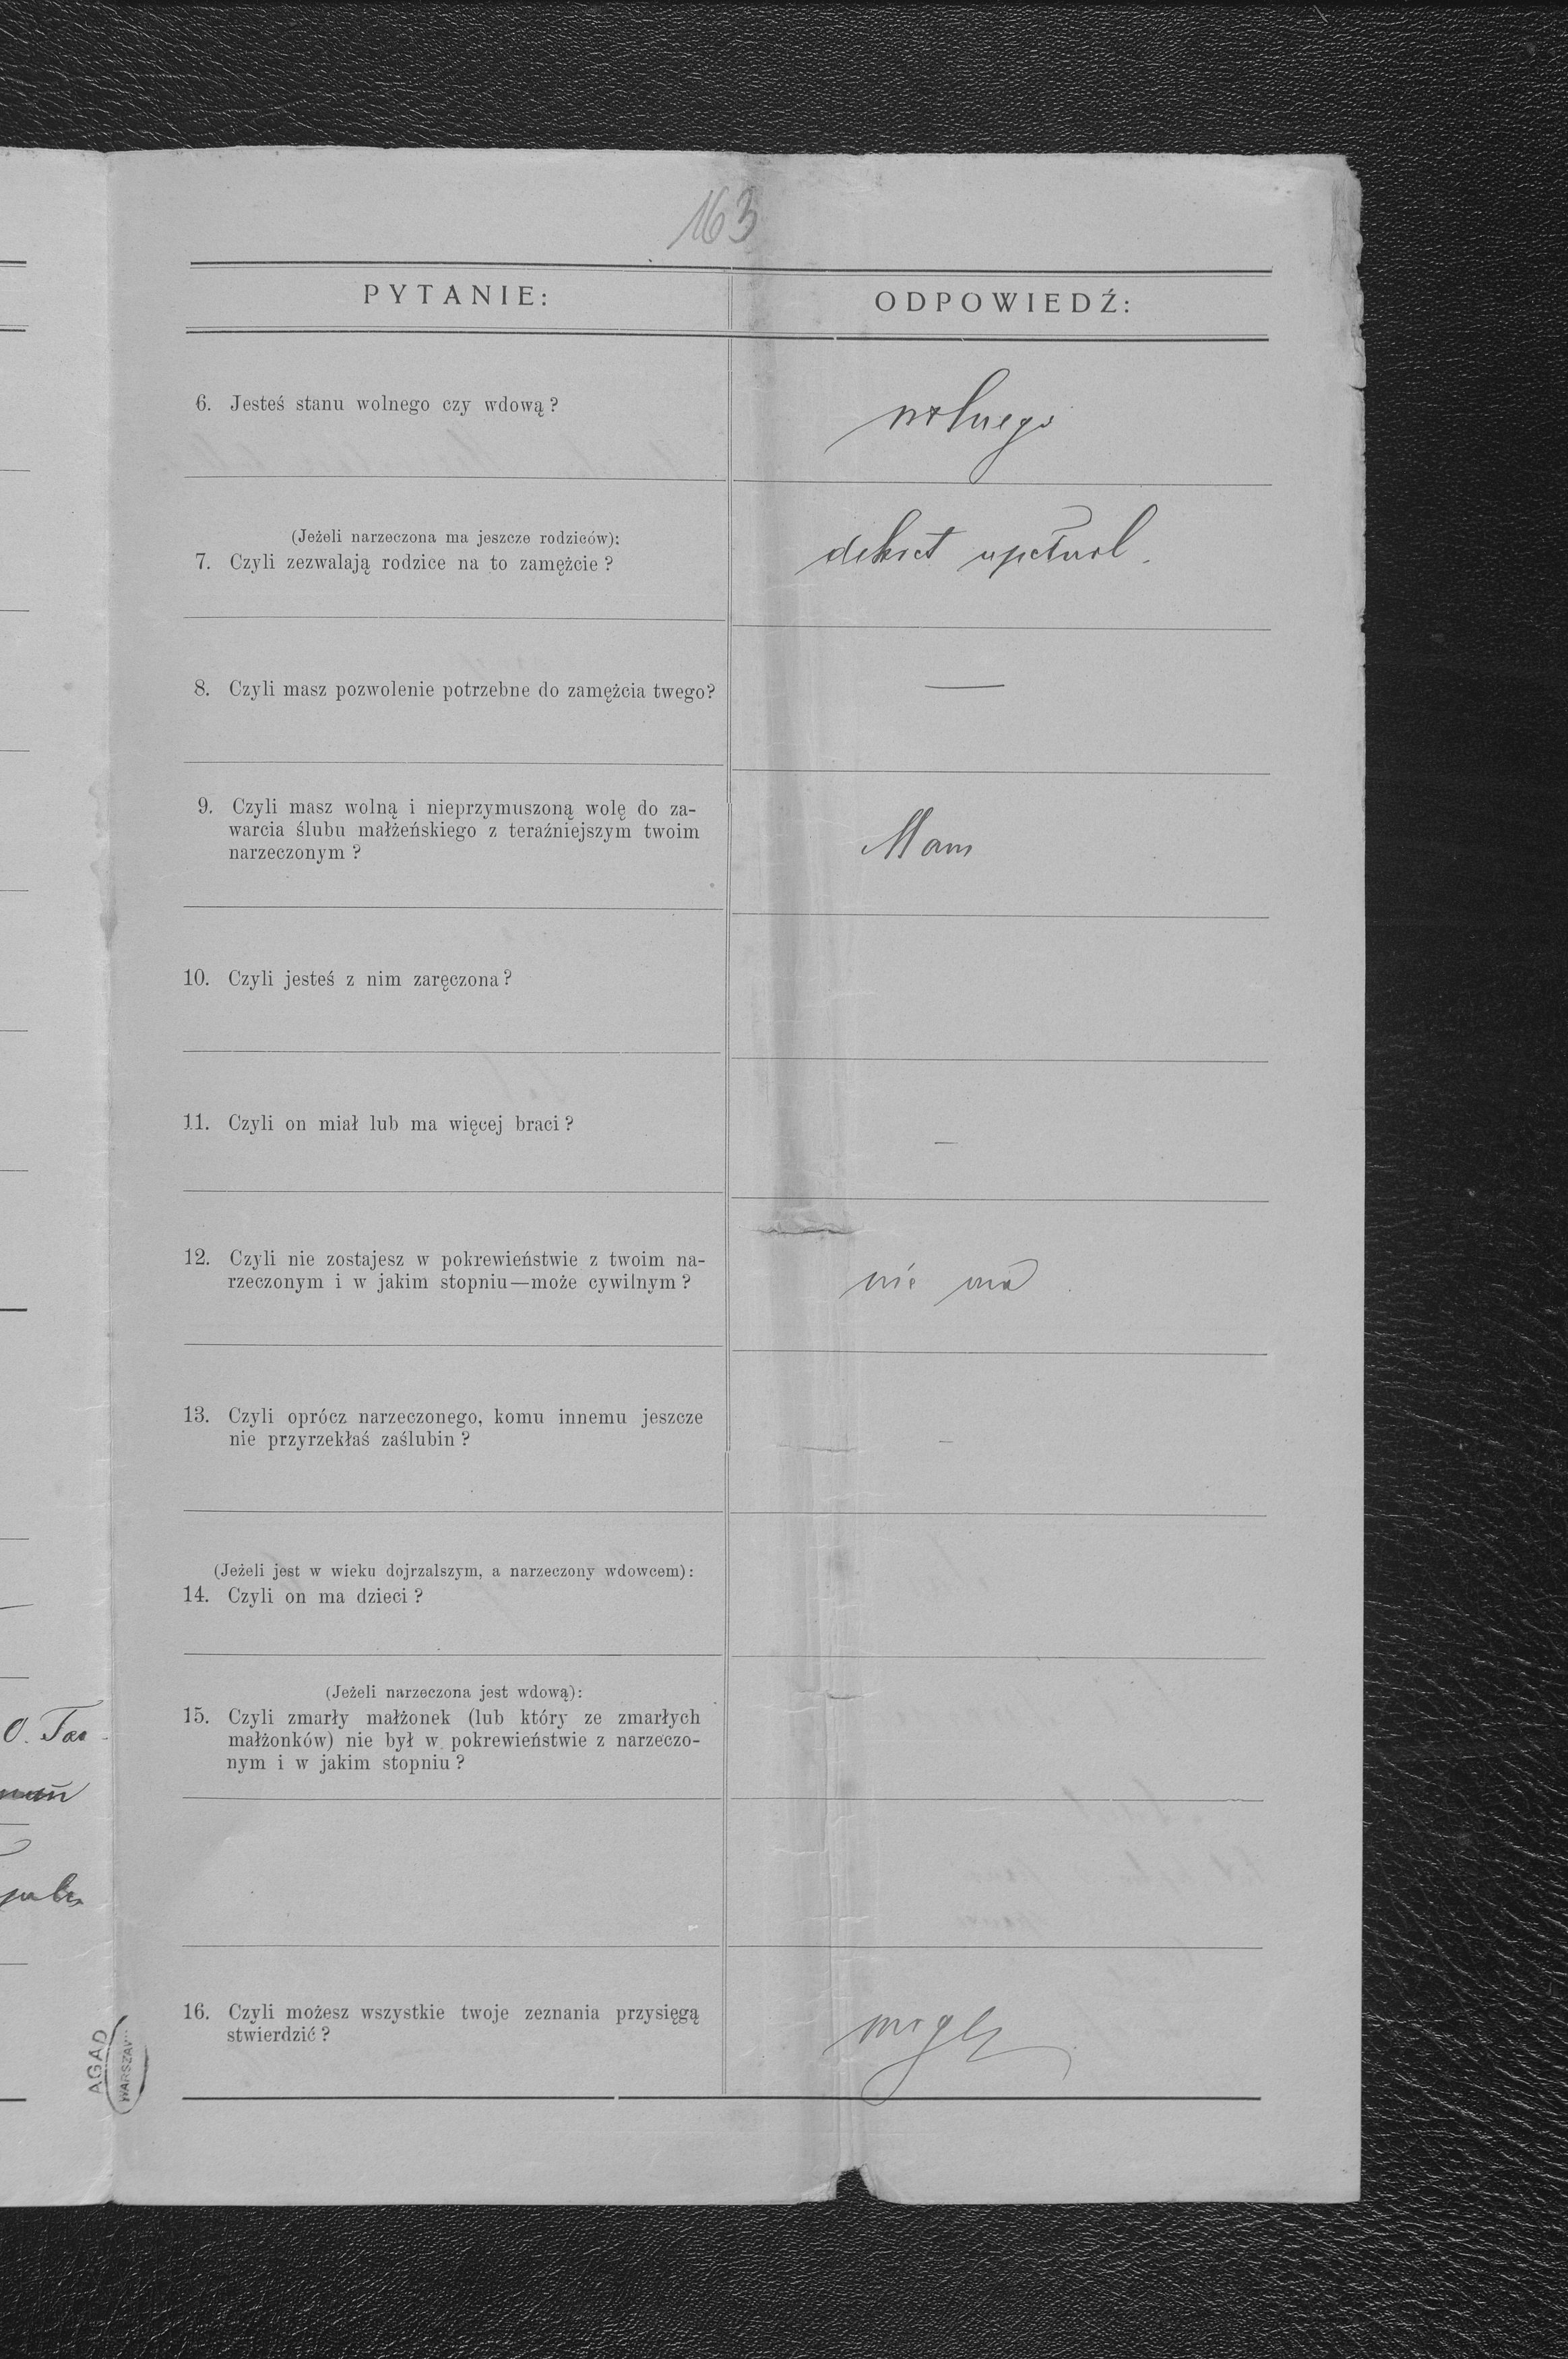 163
PYTANIE:
ODPOWIEDŹ:
6. Jesteś stanu wolnego czy wdową?
wolnego
(Jeżeli narzeczona ma jeszcze rodziców):
7. Czyli zezwalają rodzice na to zamężcie?
dekret upełnol.
8. Czyli masz pozwolenie potrzebne do zamężcia twego?
—
9. Czyli masz wolną i nieprzymuszoną wolę do za-
warcia ślubu małżeńskiego z teraźniejszym twoim
narzeczonym?
Mam
10. Czyli jesteś z nim zaręczona?
11. Czyli on miał lub ma więcej braci?
—
12. Czyli nie zostajesz w pokrewieństwie z twoim na-
rzeczonym i w jakim stopniu—może cywilnym?
nie ma
13. Czyli oprócz narzeczonego, komu innemu jeszcze
nie przyrzekłaś zaślubin?
–
(Jeżeli jest w wieku dojrzalszym, a narzeczony wdowcem):
14. Czyli on ma dzieci?
(Jeżeli narzeczona jest wdową):
15. Czyli zmarły małżonek (lub który ze zmarłych
małżonków) nie był w pokrewieństwie z narzeczo-
nym i w jakim stopniu?
16. Czyli możesz wszystkie twoje zeznania przysięgą
stwierdzić?
mogę
O. Tar-
AGAD
WARSZAW